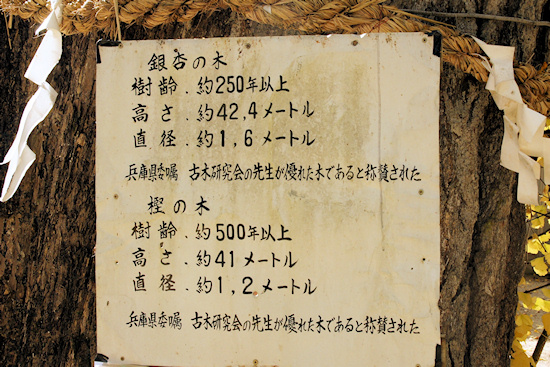 銀杏の木
樹齢.約250年以上
高さ.約42,4メートル
直径.約1,6メートル
兵庫県委嘱 古木研究会の先生が優れた木であると称賛された
樫の木
樹齢.約500年以上
高さ.約41メートル
直径.約1,2メートル
兵庫県委嘱 古木研究会の先生が優れた木であると称賛された